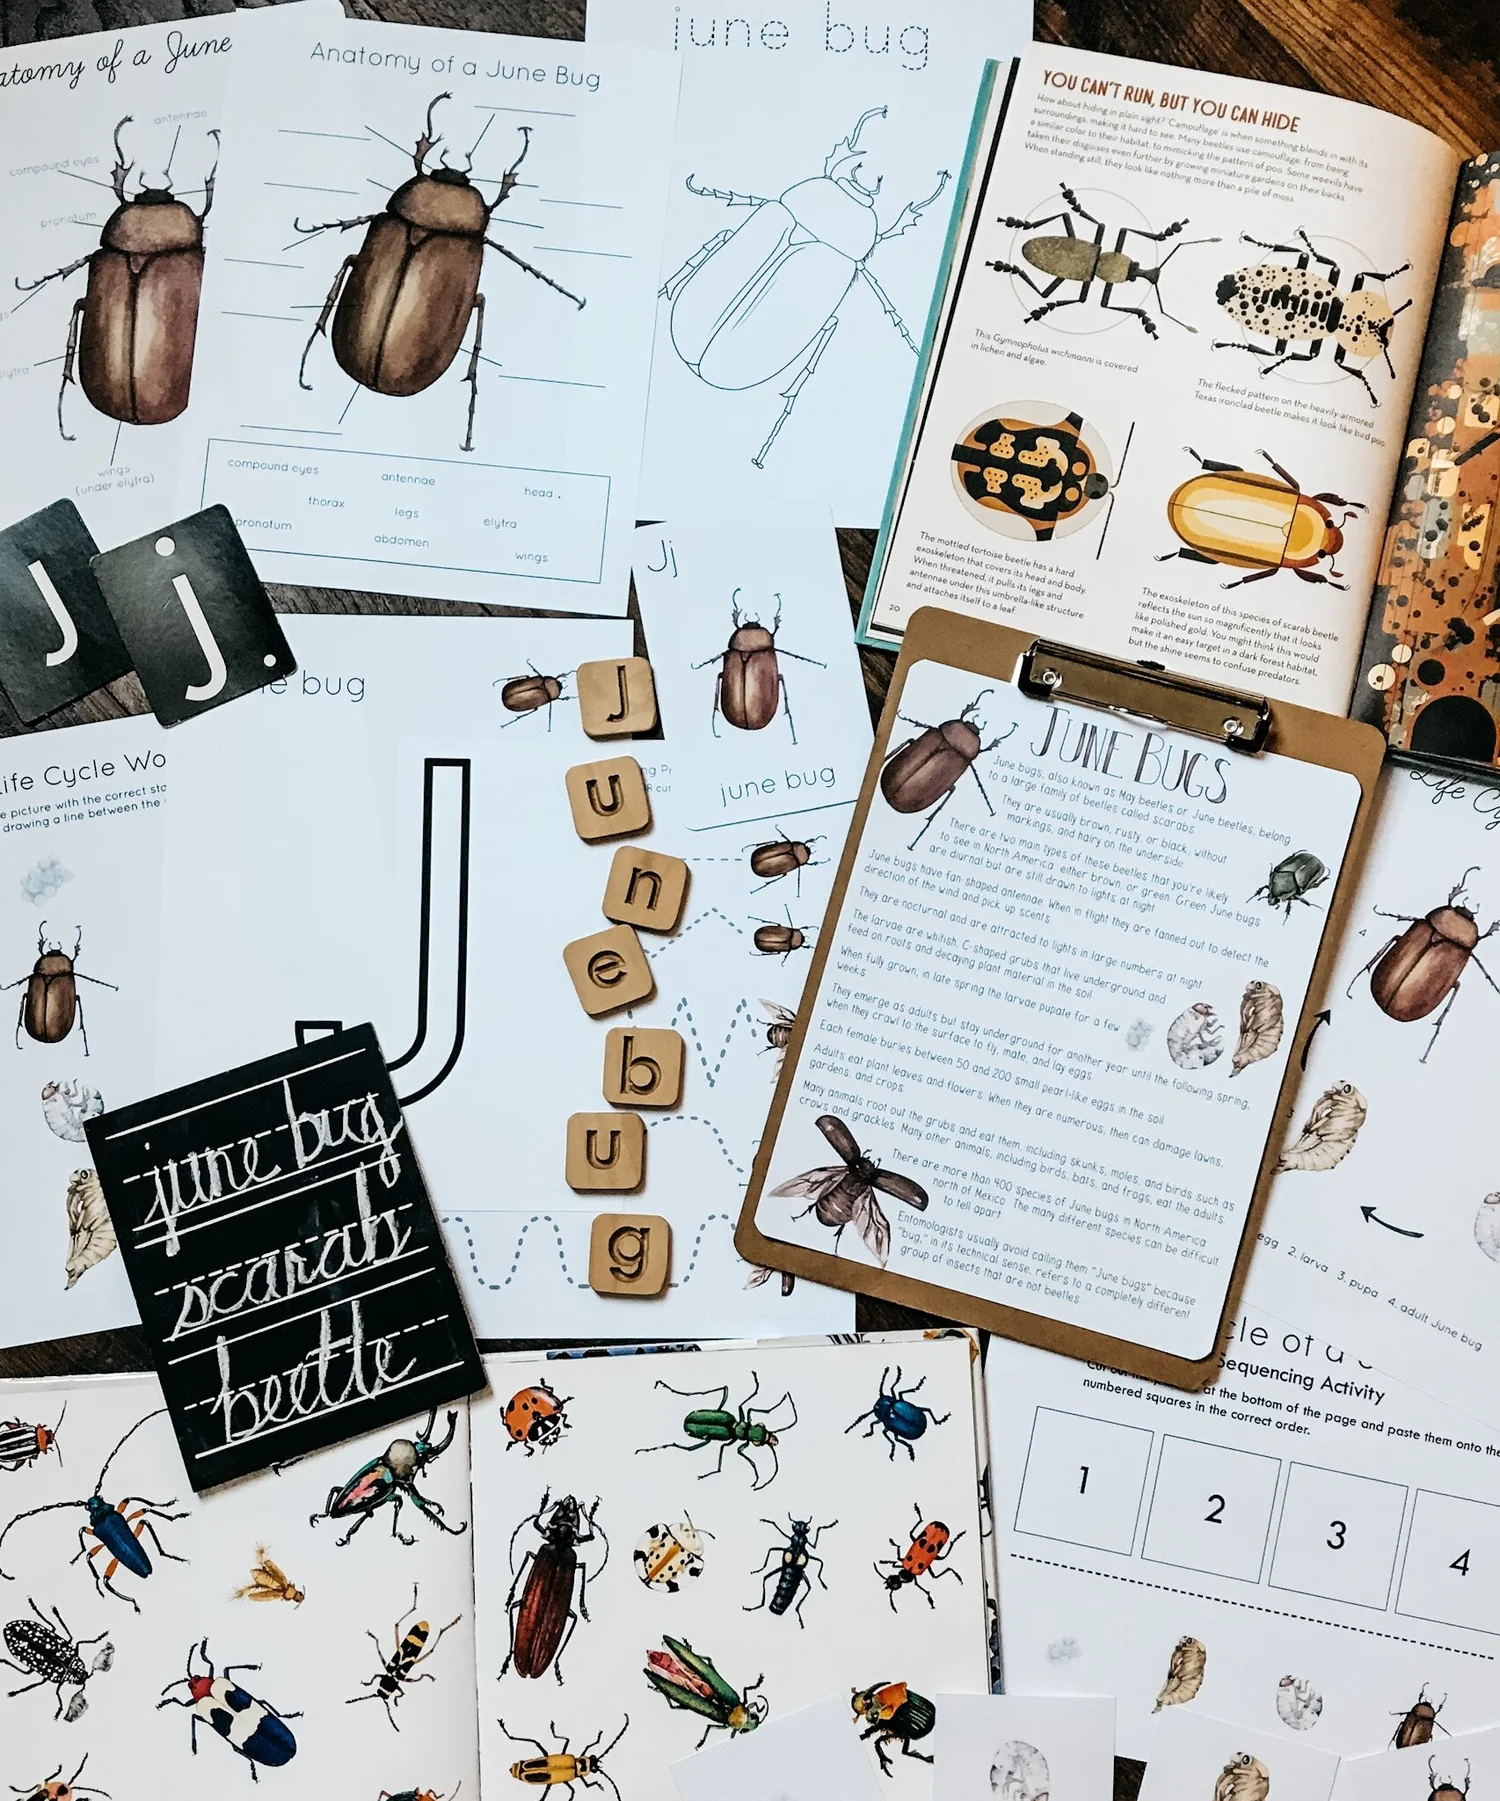 june bug
Anatomy of a June Bug
atomy of a June
antennae
compound eyes
pronotum
elytra
wings
(under elytra)
compound eyes
antennae
head .
thorax
legs
elytra
pronotum
abdomen
wings
YOU CAN'T RUN, BUT YOU CAN HIDE
How about hiding in plain sight? 'Camouflage' is when something blends in with its
surroundings, making it hard to see. Many beetles use camouflage, from being
a similar color to their habitat, to mimicking the pattern of poo. Some weevils have
taken their disguises even further by growing miniature gardens on their backs.
When standing still, they look like nothing more than a pile of moss.
This Gymnopholus wichmanni is covered
in lichen and algae.
The flecked pattern on the heavily-armored
Texas ironclad beetle makes it look like bird poo.
The mottled tortoise beetle has a hard
exoskeleton that covers its head and body.
When threatened, it pulls its legs and
antennae under this umbrella-like structure
and attaches itself to a leaf.
20
The exoskeleton of this species of scarab beetle
reflects the sun so magnificently that it looks
like polished gold. You might think this would
make it an easy target in a dark forest habitat,
but the shine seems to confuse predators.
J
j
Jj
june bug
e bug
J
u
n
e
b
u
g
ife Cycle Wo
e picture with the correct sta
drawing a line between the
june bug
scarab
beetle
JUNE BUGS
June bugs, also known as May beetles or June beetles, belong
to a large family of beetles called scarabs.
They are usually brown, rusty, or black, without
markings, and hairy on the underside.
There are two main types of these beetles that you're likely
to see in North America: either brown, or green. Green June bugs
are diurnal but are still drawn to lights at night.
June bugs have fan-shaped antennae. When in flight they are fanned out to detect the
direction of the wind and pick up scents.
They are nocturnal and are attracted to lights in large numbers at night.
The larvae are whitish, C-shaped grubs that live underground and
feed on roots and decaying plant material in the soil.
When fully grown, in late spring the larvae pupate for a few
weeks.
They emerge as adults but stay underground for another year until the following spring,
when they crawl to the surface to fly, mate, and lay eggs.
Each female buries between 50 and 200 small pearl-like eggs in the soil.
Adults eat plant leaves and flowers. When they are numerous, then can damage lawns,
gardens, and crops.
Many animals root out the grubs and eat them, including skunks, moles, and birds such as
crows and grackles. Many other animals, including birds, bats, and frogs, eat the adults.
There are more than 400 species of June bugs in North America
north of Mexico. The many different species can be difficult
to tell apart.
Entomologists usually avoid calling them "June bugs" because
"bug," in its technical sense, refers to a completely different
group of insects that are not beetles.
Life Cy
4
3
egg 2. larva 3. pupa 4. adult June bug
Sequencing Activity
at the bottom of the page and paste them onto the
numbered squares in the correct order.
1
2
3
4